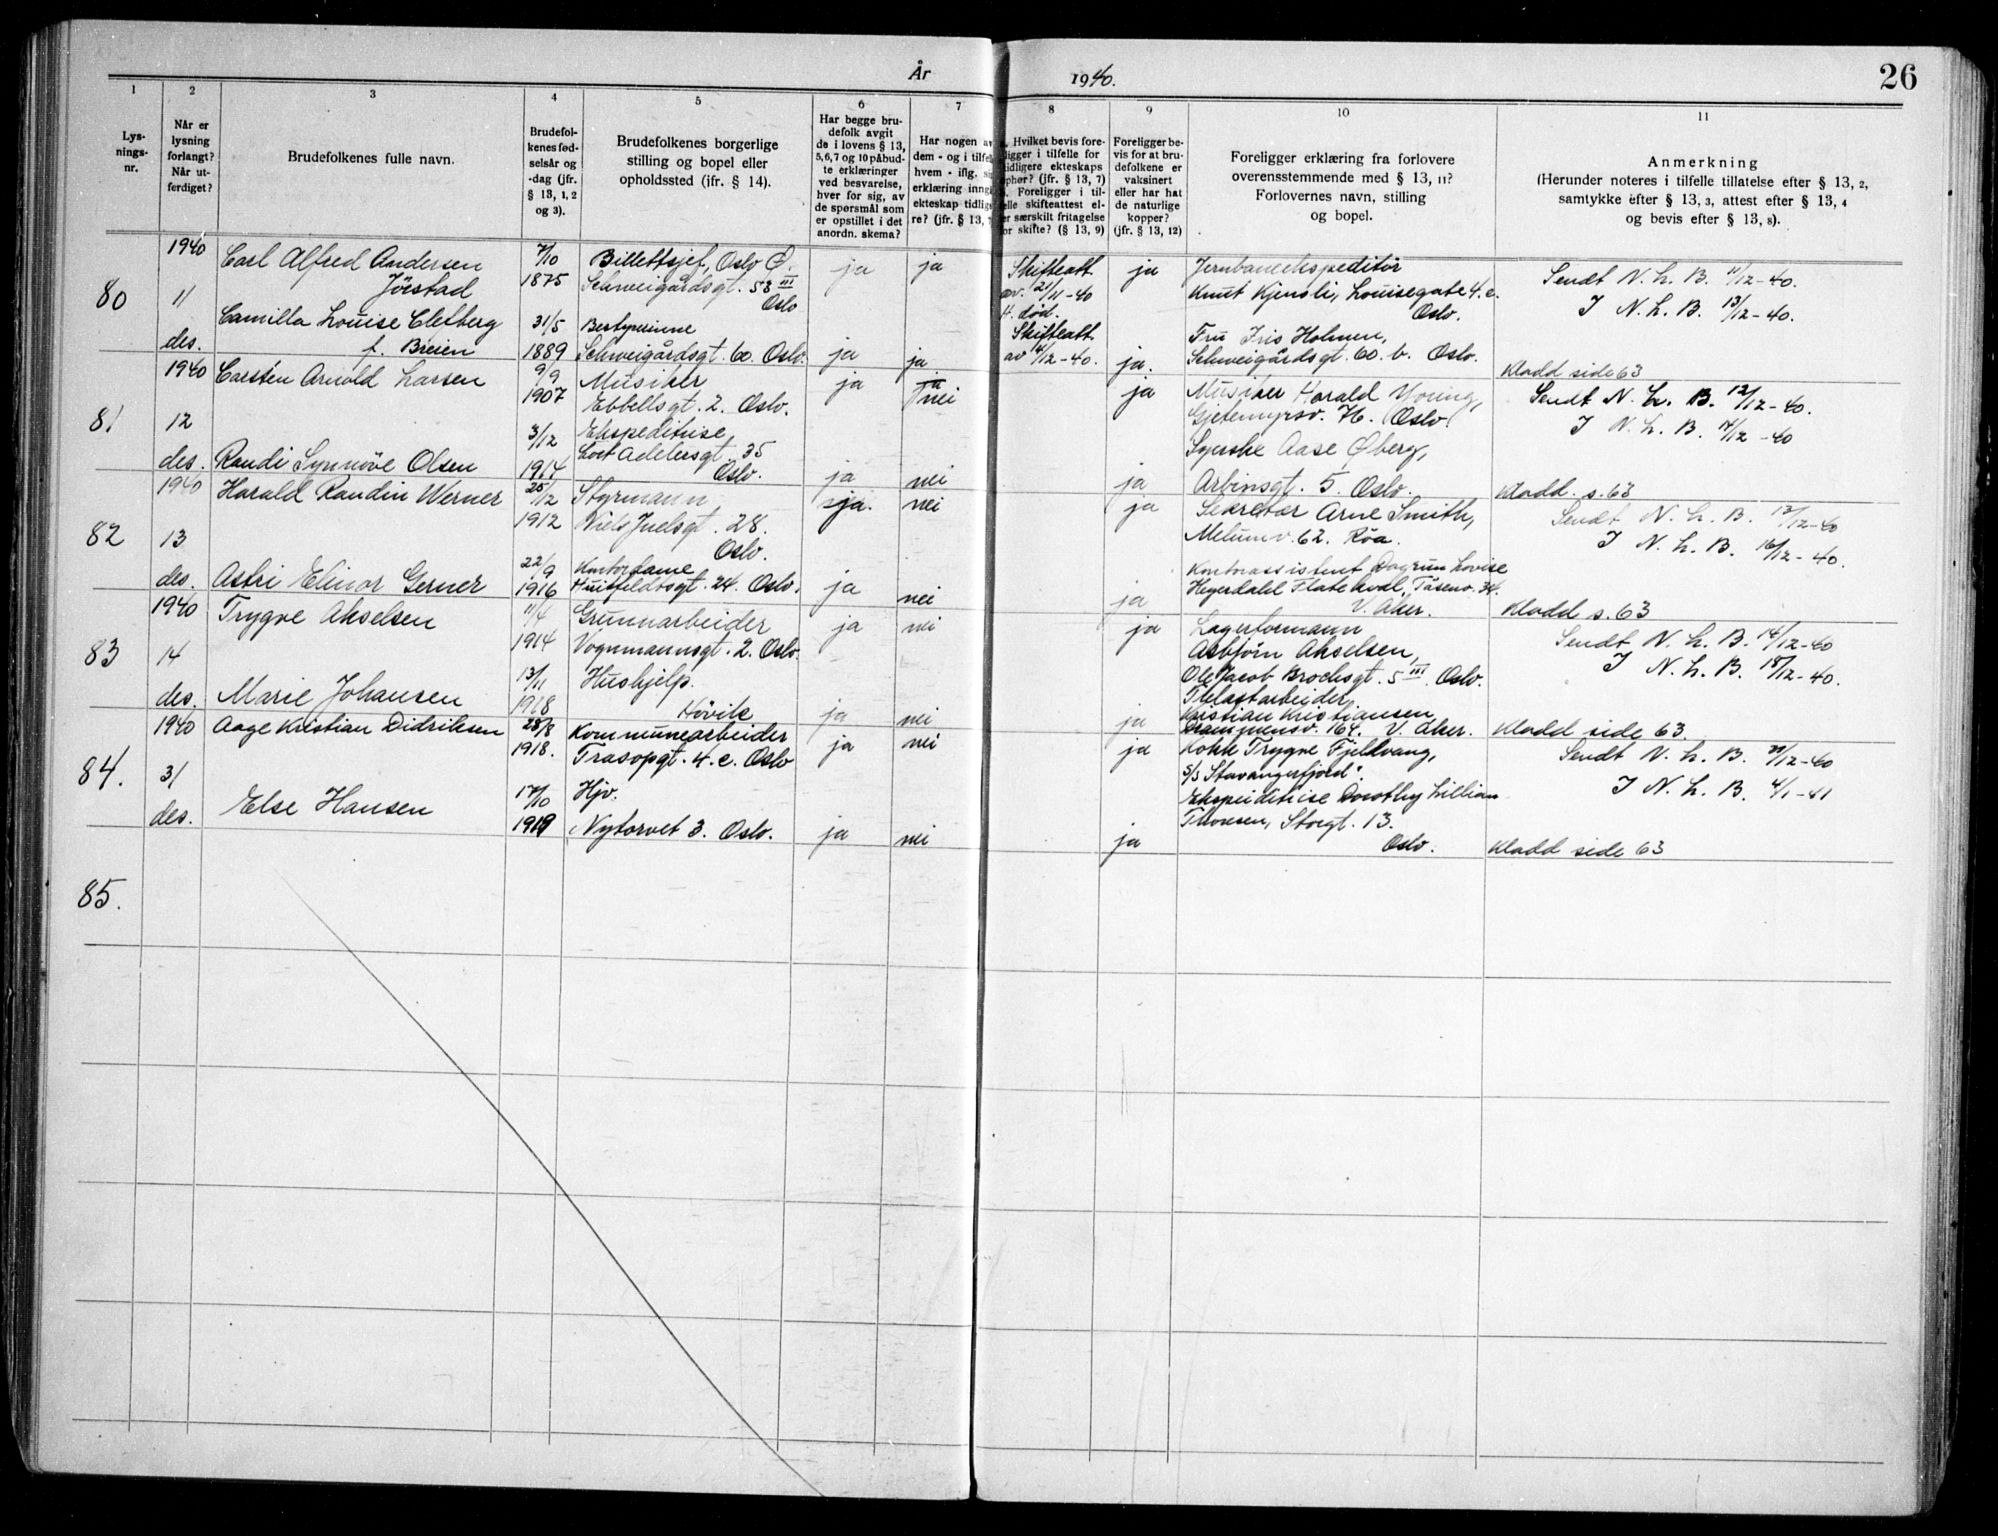 År
1940.
26
1
2
3
4
5
6
7
8
9
10
11
Lys-
nings-
nr.
Når er
lysning
forlangt?
Når ut-
ferdiget?
Brudefolkenes fulle navn.
Brudefol-
kenes fød-
selsår og
-dag (jfr.
§ 13, 1, 2
og 3).
Brudefolkenes borgerlige
stilling og bopel eller
opholdssted (jfr. § 14).
Har begge bru-
defolk avgit
de i lovens § 13,
5, 6, 7 og 10 påbud-
te erklæringer
ved besvarelse,
hver for sig, av
de spørsmål som
er opstillet i det
anordn. skema?
Har nogen av
dem - og i tilfelle
hvem - iflg. si
erklæring inngå
ekteskap tidlige
re? (jfr. § 13,
Hvilket bevis fore-
ligger i tilfelle for
tidligere ekteskaps
ophør? (jfr. § 13, 7)
Foreligger i til-
felle skifteattest el-
ler særskilt fritagelse
for skifte? (§ 13, 9)
Foreligger be-
vis for at bru-
defolkene er
vaksinert
eller har hat
de naturlige
kopper?
(jfr. § 13, 12)
Foreligger erklæring fra forlovere
overensstemmende med § 13, 11?
Forlovernes navn, stilling
og bopel.
Anmerkning
(Herunder noteres i tilfelle tillatelse efter § 13, 2,
samtykke efter § 13, 3, attest efter § 13, 4
og bevis efter § 13, 8).
80
1940
11
des.
Carl Alfred Andersen
Jörstad
7/10
1875
Billettsjef, Oslo Ø.
Schweigårdsgt. 53 III
Oslo
ja
ja
Skifteatt.
av. 21/11-40
H. död.
ja
Jernbaneekspeditör
Knut Kjensli, Louisegate 4.c.
Oslo.
Sendt N. L. B. 11/12-40.
I N. L. B. 13/12-40.
Camilla Louise Cletberg
f. Breien
31/5
1889
Bestyrerinne
Schweigårdsgt. 60. Oslo.
ja
ja
Skifteatt
av 4/12-40.
ja.
Fru Iris Holmen,
Schweigårdsgt. 60. b. Oslo.
Kladd side 63
81
1940
12
des.
Carsten Arnold Larsen
9/9
1907
Musiker
Ebbellsgt. 2. Oslo.
ja
nei
ja
Musiker Harald Young,
Gjetemyrsv. 76. Oslo
Sendt N. L. B. 12/12-40.
I N. L. B. 14/12-40
Randi Synnöve Olsen
3/12
1914
Ekspeditrise,
Cort Adelersgt. 35
Oslo.
ja
nei
ja
Syerske Aase Øberg,
Arbinsgt. 5. Oslo.
Kladd. s. 63
82
1940
13
des.
Harald Randin Werner
25/12
1912
Styrmann
Niels Juelsgt. 28.
Oslo.
ja.
nei
ja
Sekretær Arne Smith,
Melumv. 62. Röa.
Sendt N. L. B. 13/12-40
I N. L. B. 16/12-40.
Astri Elinor Gerner
22/9
1916
Kontordame
Huitfeldtsgt. 24. Oslo.
ja
nei
ja
Kontorassistent Dagrun Lovise
Heyerdahl Flatekval, Tåsenv. 34.
V. Aker.
Kladd s. 63
83
1940
14
des.
Trygve Akselsen
11/4
1914
Grunnarbeider
Vognmannsgt. 2. Oslo.
ja
nei
ja
Lagerformann
Asbjörn Akselsen,
Ole Jacob Brochsgt. 5 III. Oslo.
Sendt N. L. B. 14/12-40
I N. L. B. 18/12-40.
Marie Johansen
13/11
1918
Hushjelp.
Hövik
ja
nei
ja
Kristian Kristiansen
Drammensv. 164. V. Aker.
Kladd side 63.
84.
1940
31
des.
Aage Kristian Didriksen
28/8
1918.
Kommunearbeider
Trasopgt. 4. c. Oslo
ja
nei
ja
Kokk Trygve Fjeldvang,
S/S "Stavangerfjord".
Sendt N. L. B. 31/12-40
I N. L. B. 4/1-41
Else Hansen
17/10
1919
Hjv.
Nytorvet 3. Oslo.
ja
nei
ja
Ekspeditrise Dorothy Lillian
Thoresen, Storgt. 13.
Oslo.
Kladd side 63
85.